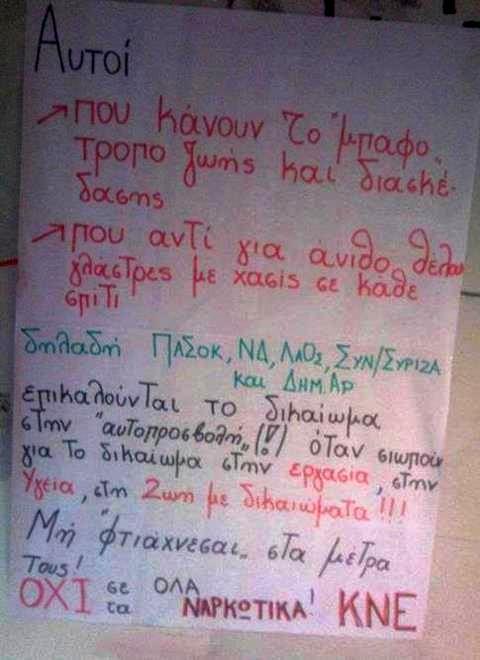 Αυτοί
↗ που κάνουν το "μπαφο"
τροπο ζωής και διασκέ-
δασης
↗ που αντί για άνιθο θέλουν
γλάστρες με χασίς σε κάθε
σπίτι
δηλαδή ΠΑΣΟΚ, ΝΔ, ΛΑΟΣ, ΣΥΝ/ΣΥΡΙΖΑ
και ΔΗΜ.ΑΡ
επικαλούνται το δικαίωμα
στην "αυτοπροσβολή" (!) όταν σιωπούν
για το δικαίωμα στην εργασία, στην
Υγεία, στη Ζωή με δικαιώματα!!!
Μή "φτιάχνεσαι" στα μέτρα
τους!
ΟΧΙ σε ΟΛΑ
τα ΝΑΡΚΩΤΙΚΑ! ΚΝΕ